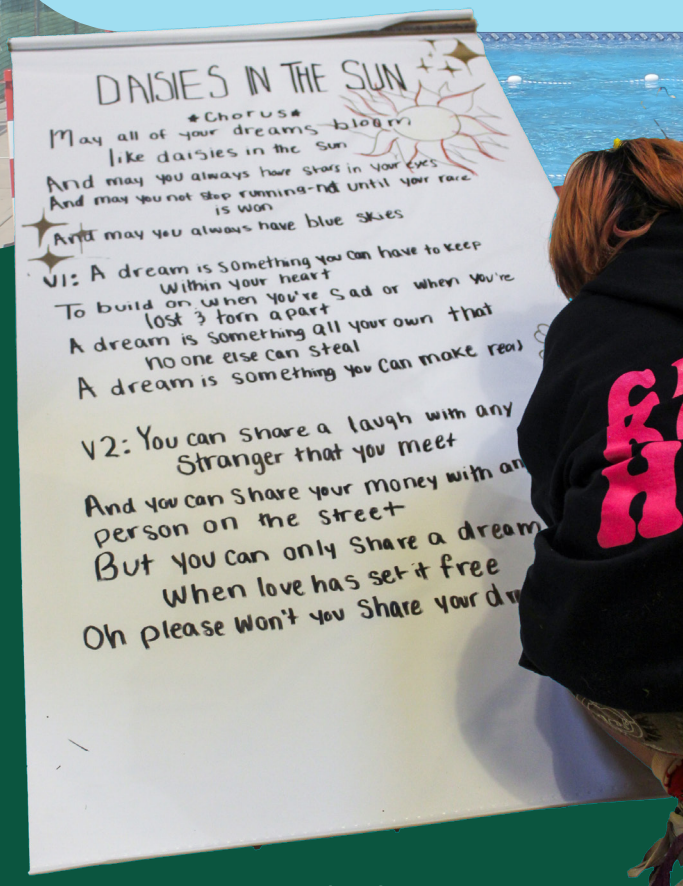 DAISIES IN THE SUN
*Chorus*
May all of your dreams bloom
like daisies in the sun
And may you always have stars in your eyes
And may you not stop running-nd until your race
is won
And may you always have blue skies
V1: A dream is something you can have to keep
within your heart
To build on when you're sad or when you're
lost & torn apart
A dream is something all your own that
no one else can steal
A dream is something you can make real
V2: You can share a laugh with any
stranger that you meet
And you can share your money with
person on the street
But you can only share a dream
When love has set it free
Oh please won't you share your